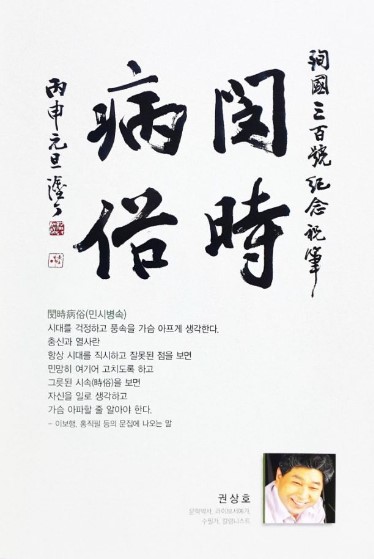 殉國三百號紀念祝筆
閔時
病俗
丙申元旦
閔時病俗(민시병속)
시대를 걱정하고 풍속을 가슴 아프게 생각한다.
충신과 열사란
항상 시대를 직시하고 잘못된 점을 보면
민망히 여기어 고치도록 하고
그릇된 시속(時俗)을 보면
자신을 일로 생각하고
가슴 아파할 줄 알아야 한다.
- 이보행, 홍직필 등의 문집에 나오는 말
권상호
문학박사, 라이브서예가,
수필가, 칼럼니스트